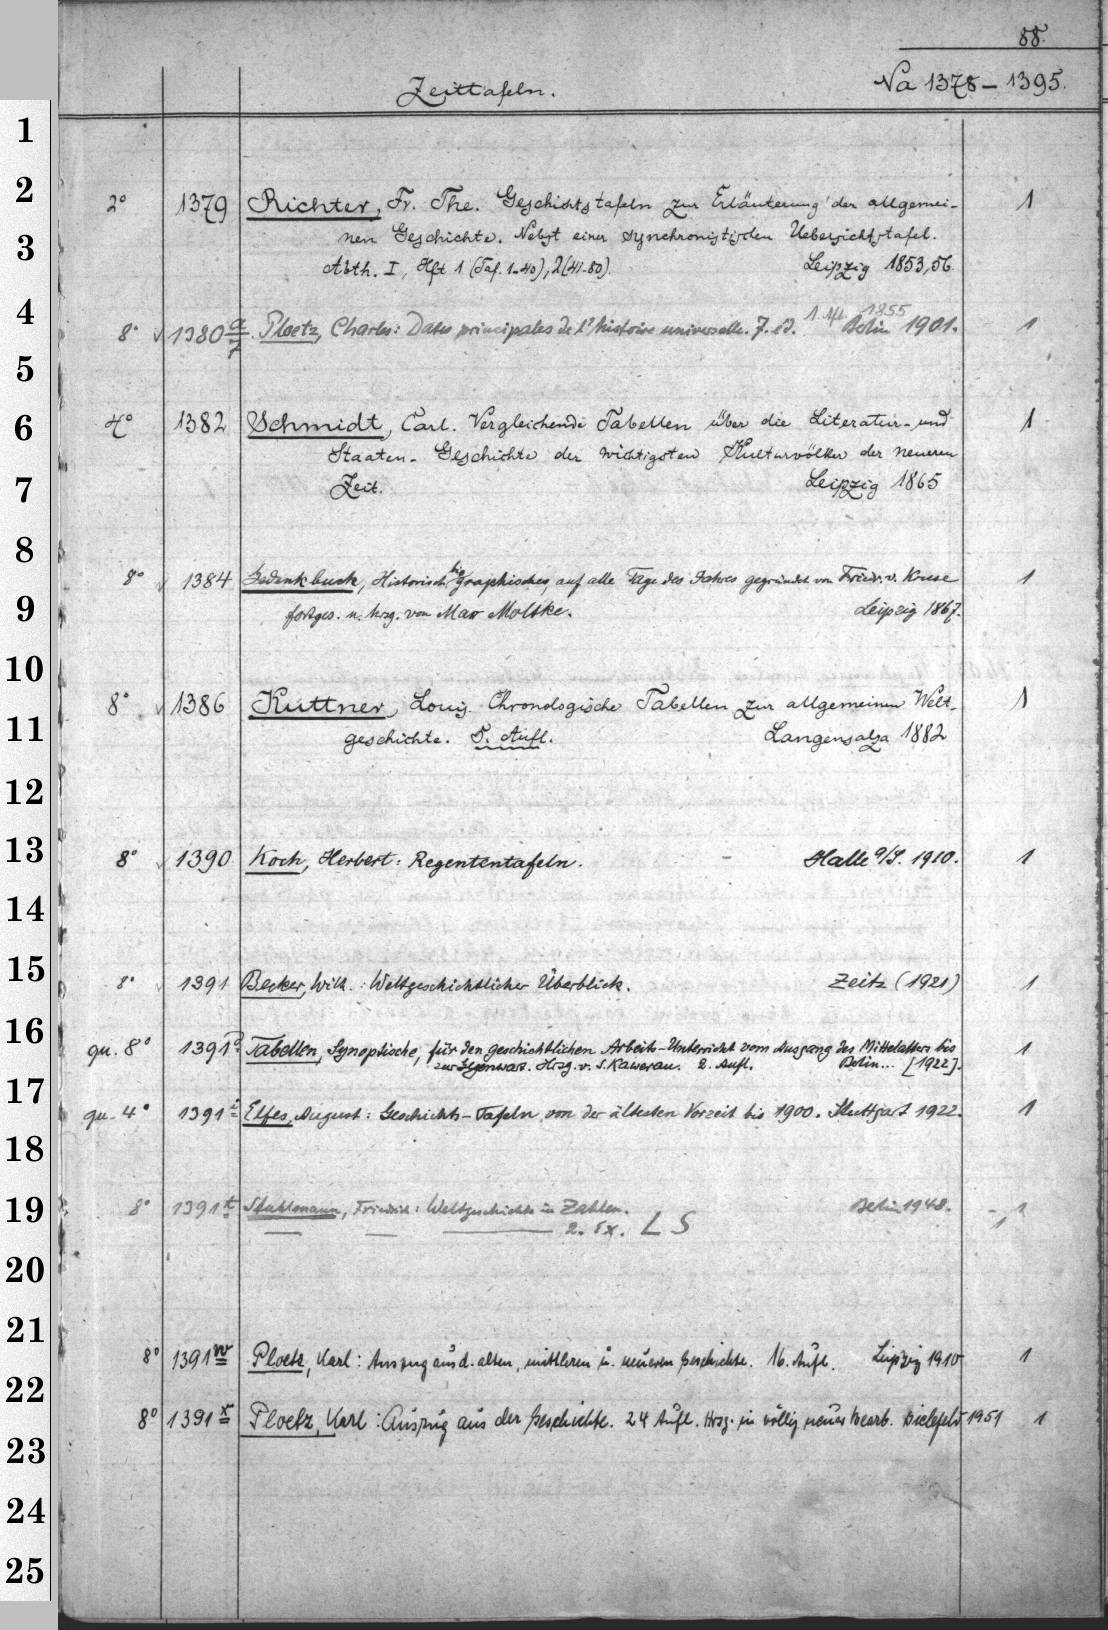 88.
Zeittafeln. Na 1378 – 1395.
1
2
2° 1379 Richter, Fr. The. Geschichtstafeln zur Erläuterung der allgemei- 1
3
nen Geschichte. Nebst einer synchronistischen Uebersichtstafel.
Abth. I, Hft 1 (Taf. 1-40), 2(41-80) Leipzig 1853,56.
4
1855
8° 1380 a Ploetz, Charles: Dates principales de l'histoire universelle. 7. éd. Berlin 1901. 1
5
6
4° 1382 Schmidt, Carl. Vergleichende Tabellen über die Literatur- und 1
Staaten- Geschichte der wichtigsten Kulturvölker der neueren
7
Zeit. Leipzig 1865
8
8° 1384 Gedenkbuch, Historisch-biographisches, auf alle Tage des Jahres gegründet von Friedr. v. Kruse 1
9
fortges. u. hrsg. von Max Moltke. Leipzig 1867.
10
8° 1386 Küttner, Louis. Chronologische Tabellen zur allgemeinen Welt- 1
11
geschichte. 5. Aufl. Langensalza 1882
12
13
8° 1390 Koch, Herbert: Regententafeln. – Halle a/S. 1910. 1
14
15
8° 1391 Becker, Wilh.: Weltgeschichtlicher Überblick. Zeitz (1921) 1
16
qu. 8° 1391 Tabellen, Synoptische, für den geschichtlichen Arbeits-Unterricht vom Ausgang des Mittelalters bis 1
zur Gegenwart. Hrsg. v. S. Kawerau. 2. Aufl. Berlin... [1922].
17
qu. 4° 1391 i Elfes, August: Geschichts-Tafeln von der ältesten Vorzeit bis 1900. Stuttgart 1922. 1
18
19
8° 1391 t Stahlmann, Friedrich: Weltgeschichte in Zahlen. Berlin 1948. 1
— — — 2. Ex. L S 1
20
21
8° 1391 w Ploetz, Karl: Auszug aus d. alten, mittleren u. neueren Geschichte. 16. Aufl. Leipzig 1910 1
22
8° 1391 x Ploetz, Karl: Auszug aus der Geschichte. 24 Aufl. Hrsg. in völlig neuer Bearb. Bielefeld 1951 1
23
24
25